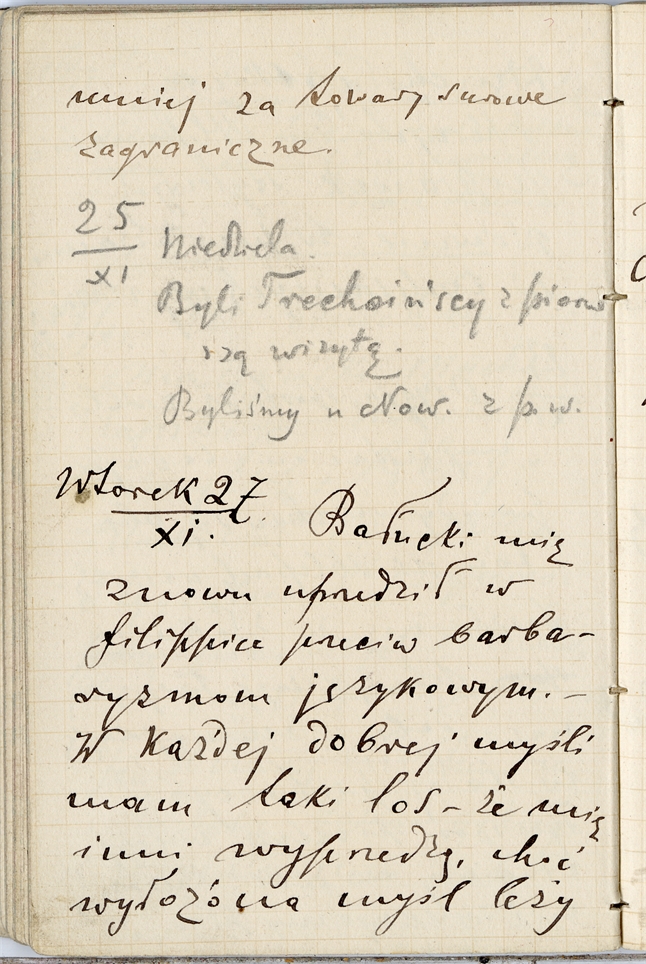 mniej za towary surowe
zagraniczne.
25
XI
Niedziela.
Byli Trechcińscy z pierw
szą wizytą.
Byliśmy u Now. z p. w.
Wtorek 27
XI.
Bałucki mię
znowu uprzedził w
filippice przeciw barba-
ryzmom językowym. -
W każdej dobrej myśli
mam taki los - że mię
inni wyprzedzą, choć
wyłożona myśl leży